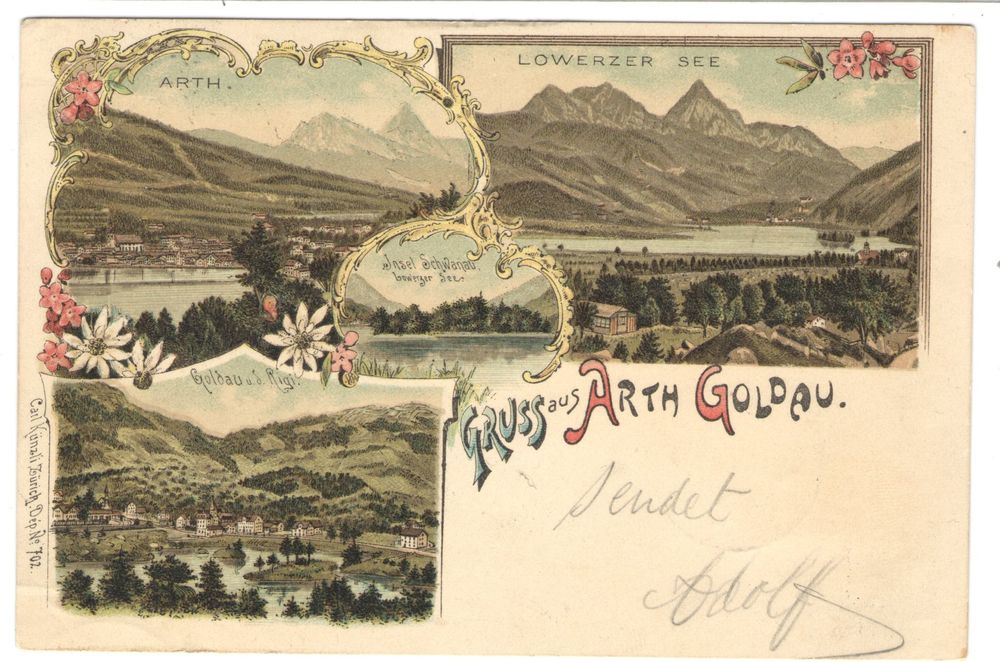 ARTH.
LOWERZER SEE
Insel Schwanau,
Lowerzer See.
Goldau u. d. Rigi.
GRUSS aus ARTH GOLDAU.
Sendet
Adolf
Carl Künzli Zürich. Dép. No. 702.